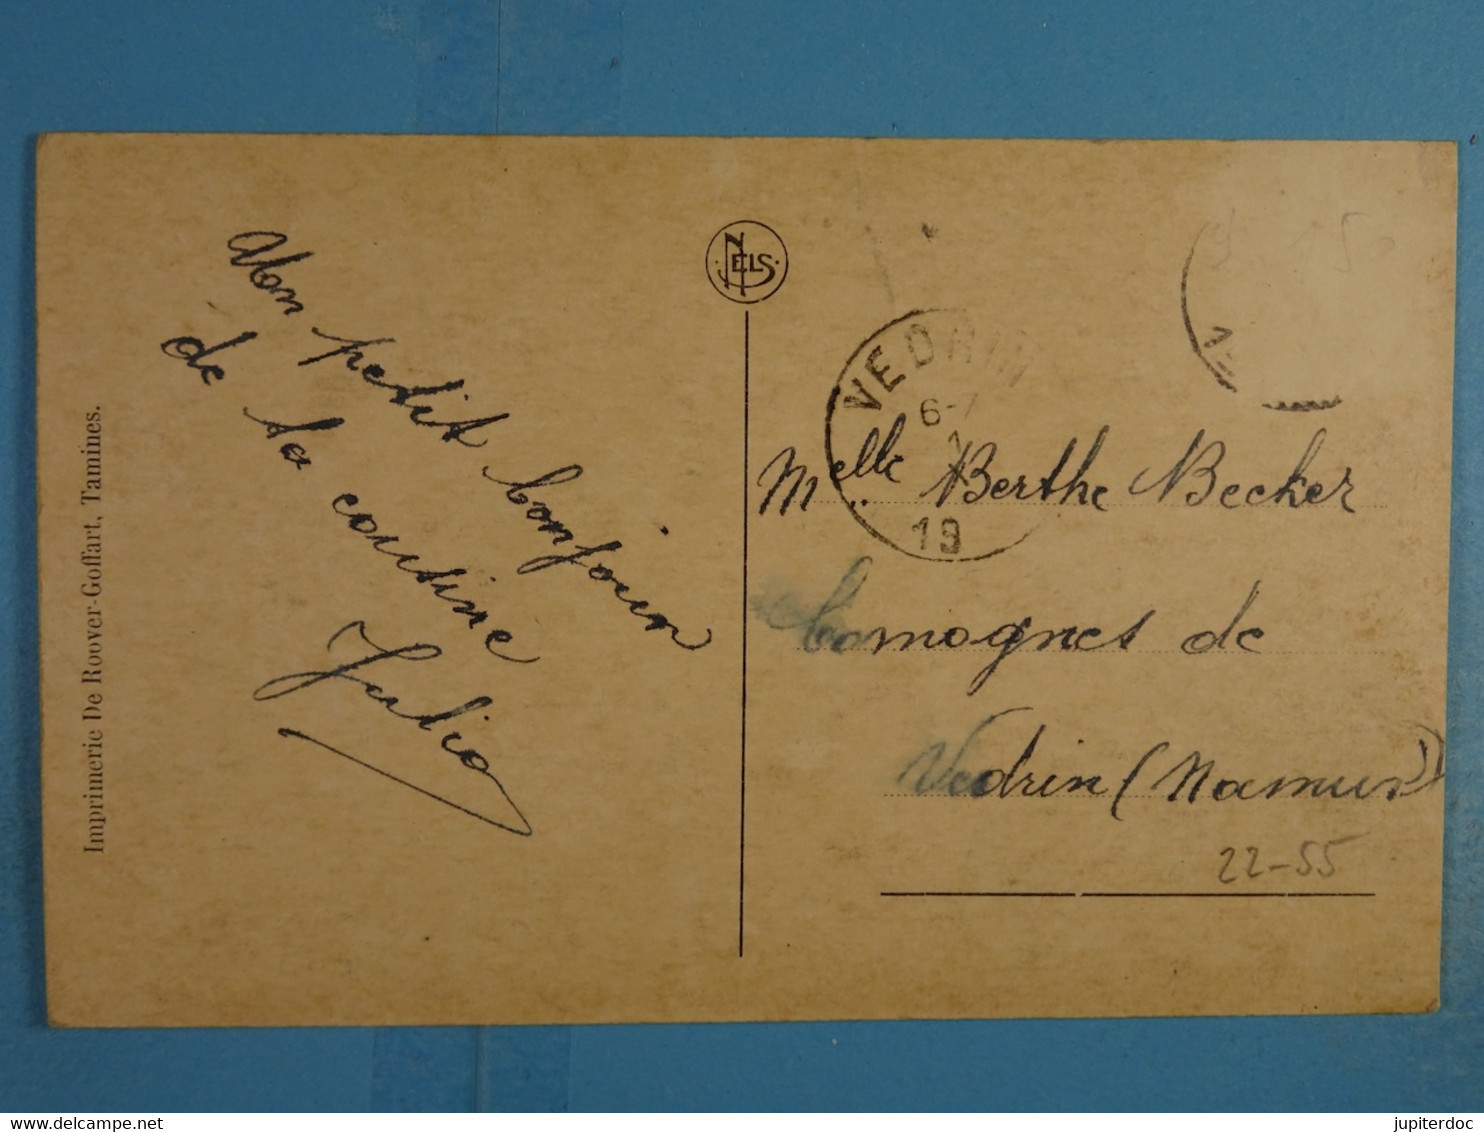 Imprimerie De Roover-Goffart, Tamines.
Un petit bonjour
de ta cousine
Julia
NELS
VEDRIN
6-7
1
19
Melle Berthe Becker
Comognes de
Vedrin (Namur)
22-55
delcampe.net
jupiterdoc